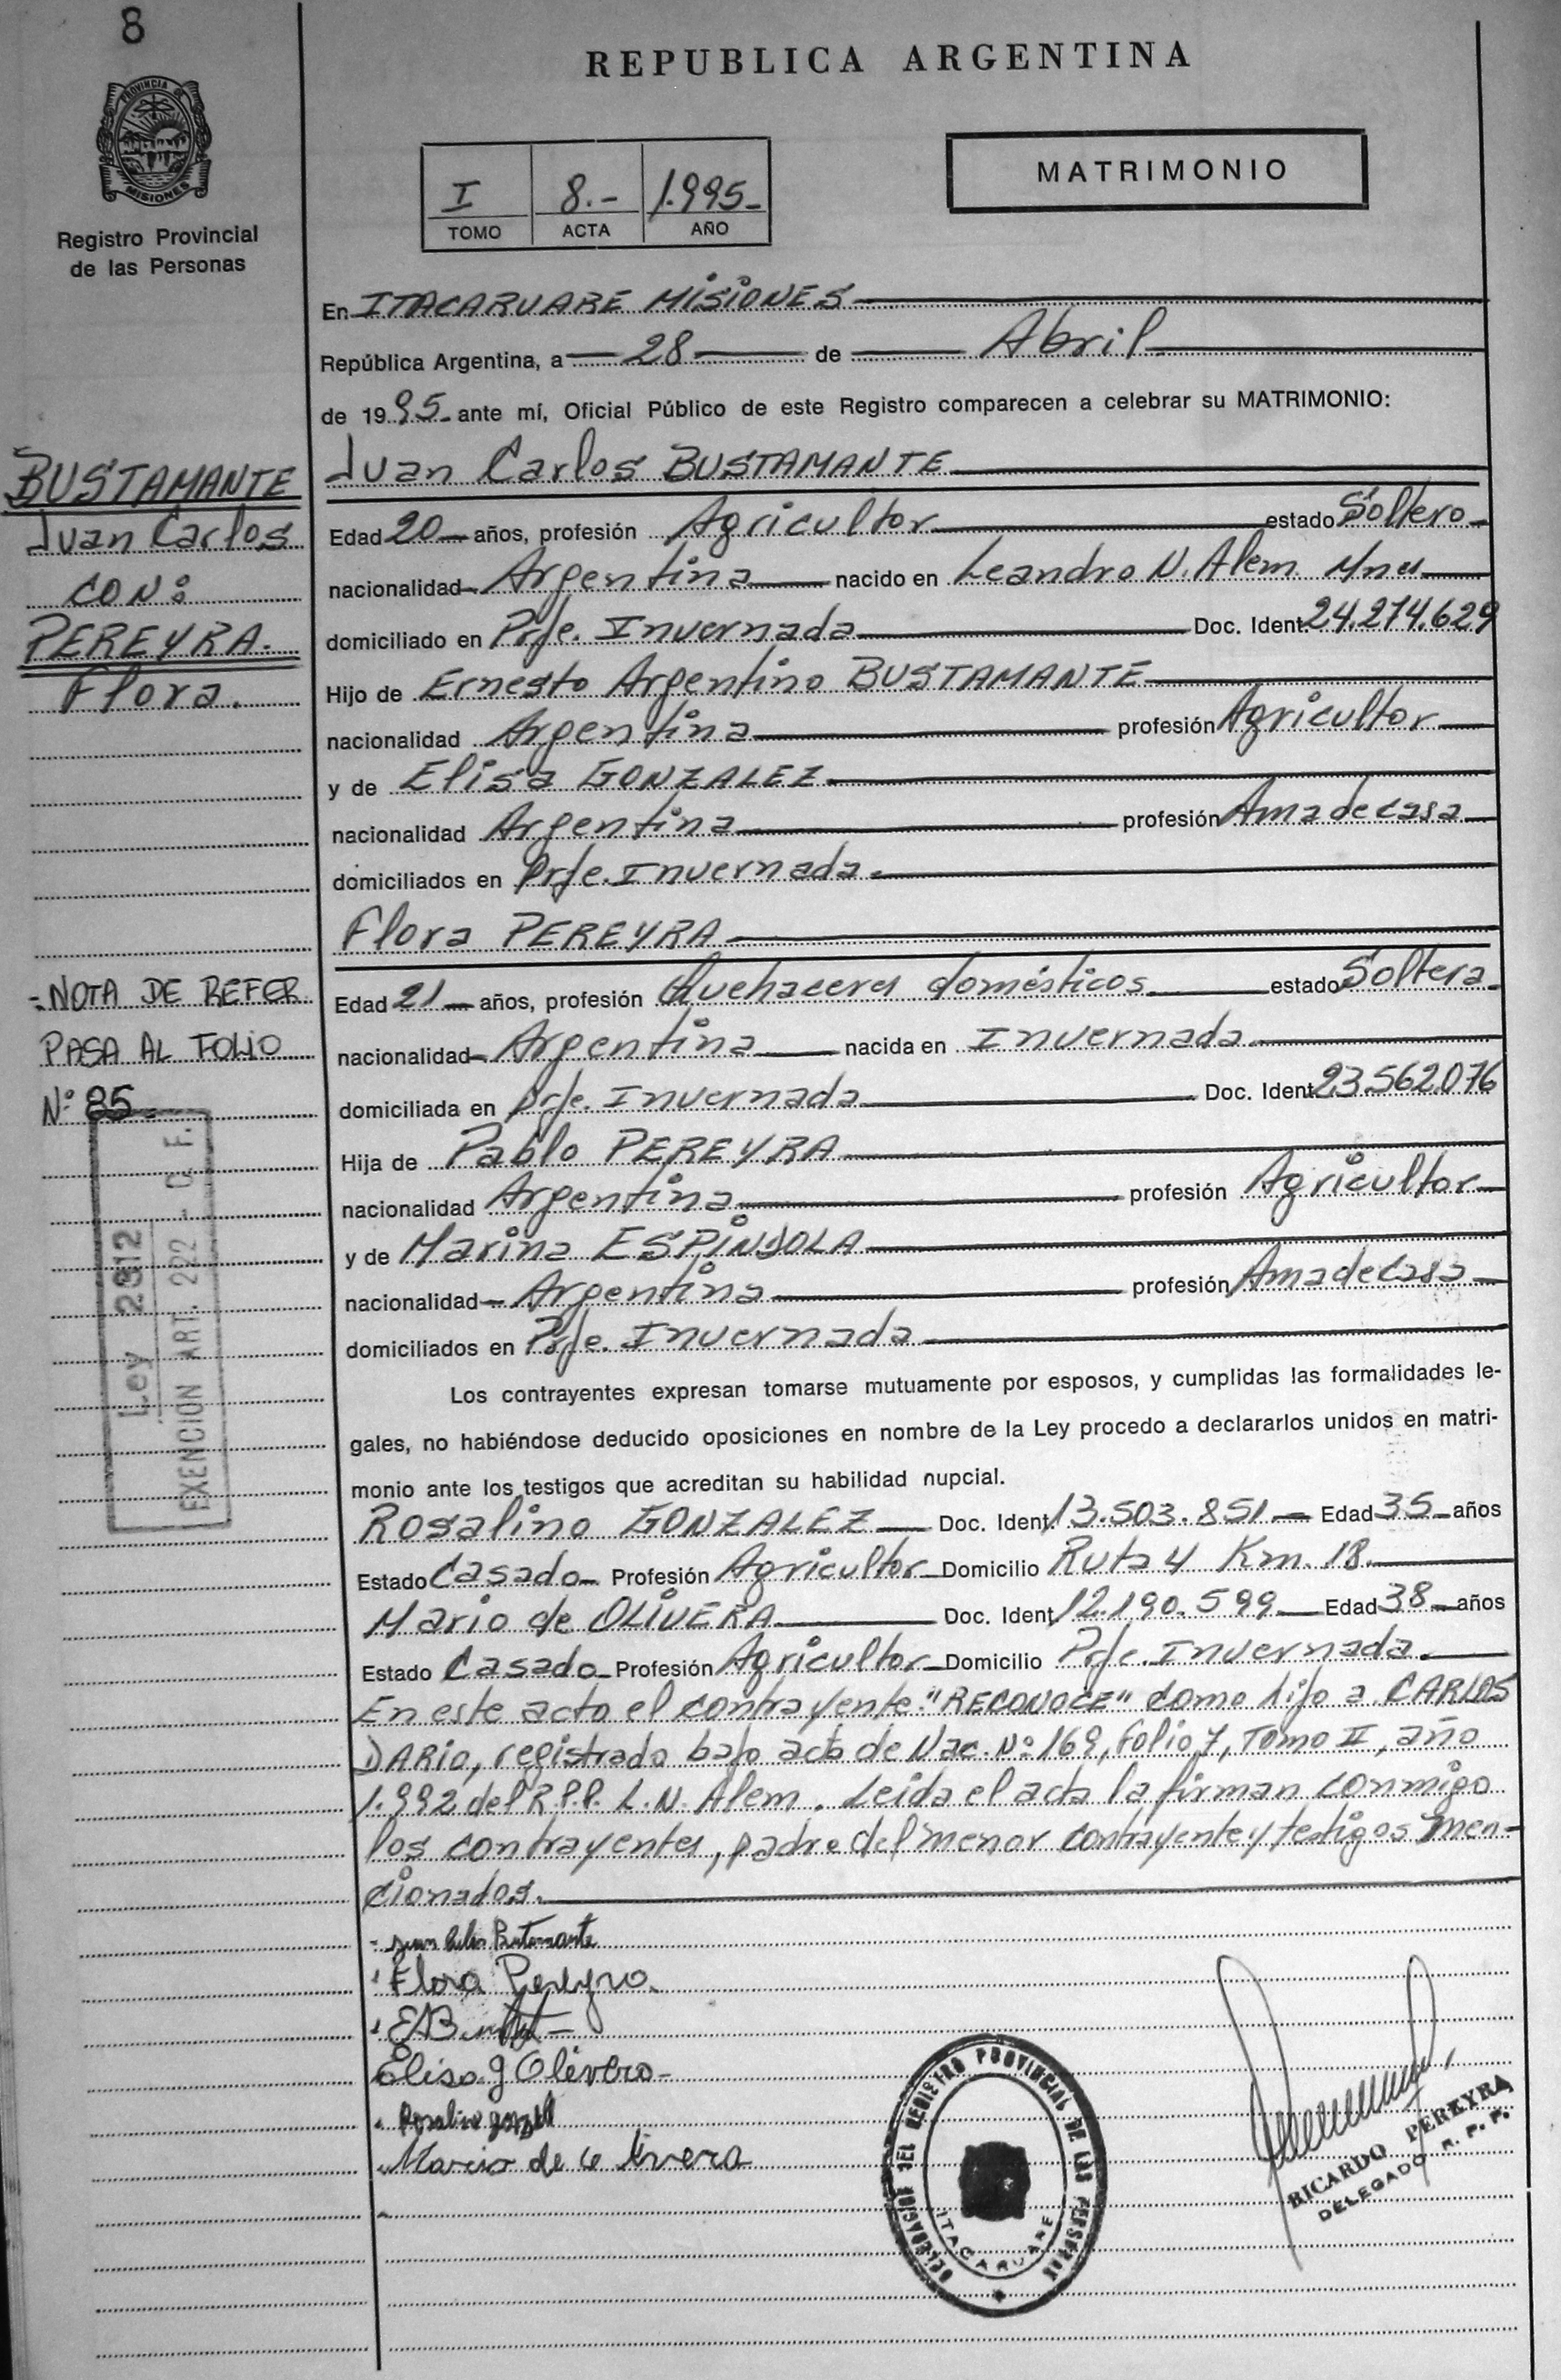 8
REPUBLICA ARGENTINA
PROVINCIA DE
MISIONES
Registro Provincial
de las Personas
I 8.- 1.995-
TOMO ACTA AÑO
MATRIMONIO
En ITACARUARE MISIONES
República Argentina, a 28 de Abril
de 1995- ante mí, Oficial Público de este Registro comparecen a celebrar su MATRIMONIO:
BUSTAMANTE
Juan Carlos
CON:
PEREYRA.
Flora.
Juan Carlos BUSTAMANTE
Edad 20 años, profesión Agricultor estado Soltero
nacionalidad Argentina nacido en Leandro N. Alem Mnes
domiciliado en Prje. Invernada Doc. Ident. 24.274.629
Hijo de Ernesto Argentino BUSTAMANTE
nacionalidad Argentina profesión Agricultor
y de Elisa GONZALEZ
nacionalidad Argentina profesión Ama de casa
domiciliados en Prje. Invernada.
Flora PEREYRA
- NOTA DE REFER
PASA AL FOLIO
Nº 85-
Ley 2312
EXENCION ART. 222 - C. F.
Edad 21 años, profesión Quehaceres domésticos estado Soltera
nacionalidad Argentina nacida en Invernada
domiciliada en Prje. Invernada Doc. Ident. 23.562.076
Hija de Pablo PEREYRA
nacionalidad Argentina profesión Agricultor
y de Marina ESPINDOLA
nacionalidad Argentina profesión Ama de casa
domiciliados en Prje. Invernada
Los contrayentes expresan tomarse mutuamente por esposos, y cumplidas las formalidades le-
gales, no habiéndose deducido oposiciones en nombre de la Ley procedo a declararlos unidos en matri-
monio ante los testigos que acreditan su habilidad nupcial.
Rosalino GONZALEZ Doc. Ident. 13.503.851 Edad 35 años
Estado Casado Profesión Agricultor Domicilio Ruta 4 Km. 18
Mario de OLIVERA Doc. Ident. 12.190.599 Edad 38 años
Estado Casado Profesión Agricultor Domicilio Prje. Invernada.
En este acto el contrayente "RECONOCE" como hijo a CARLOS
DARIO, registrado bajo acta de Nac. Nº 169, Folio 7, Tomo II, año
1.992 del R.P.P. L.N. Alem. Leida el acta la firman conmigo
los contrayentes, padre del menor contrayente y testigos men-
cionados.
Juan Carlos Bustamante
Flora Pereyra
Elisa g Olivera
Rosalino
Mario de
DELEGACION DEL REGISTRO PROVINCIAL DE LAS PERSONAS
ITACARUARE
RICARDO PEREYRA
DELEGADO R. P. P.